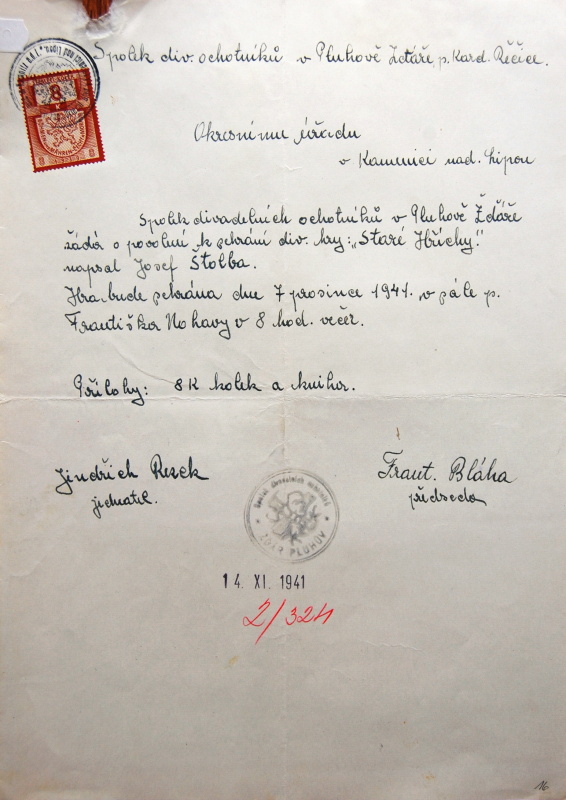 Spolek div. ochotníků v Pluhově Žďáře, p. Kard. Řečice.
8
Okresnímu úřadu
v Kamenici nad. Lipou
Spolek divadelních ochotníků v Pluhově Žďáře
žádá o povolní k sehrání div. hry: „Staré Hříchy."
napsal Josef Štolba.
Hra bude sehrána dne 7 prosince 1941. v sále p.
Františka Nohavy v 8 hod. večer.
Přílohy: 8 K kolek a kniha.
Jindřich Rezek
jednatel.
Frant. Bláha
předseda
ŽĎÁR PLUHOV
14. XI. 1941
2/324
16